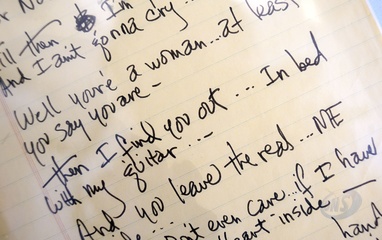 No
Till then I'm
And I ain't gonna cry...
Well you're a woman...at least
you say you are –
then I find you out .... In bed
with my guitar ....
And you leave the real ... ME
Don't even care..if I have
heart inside –
hand